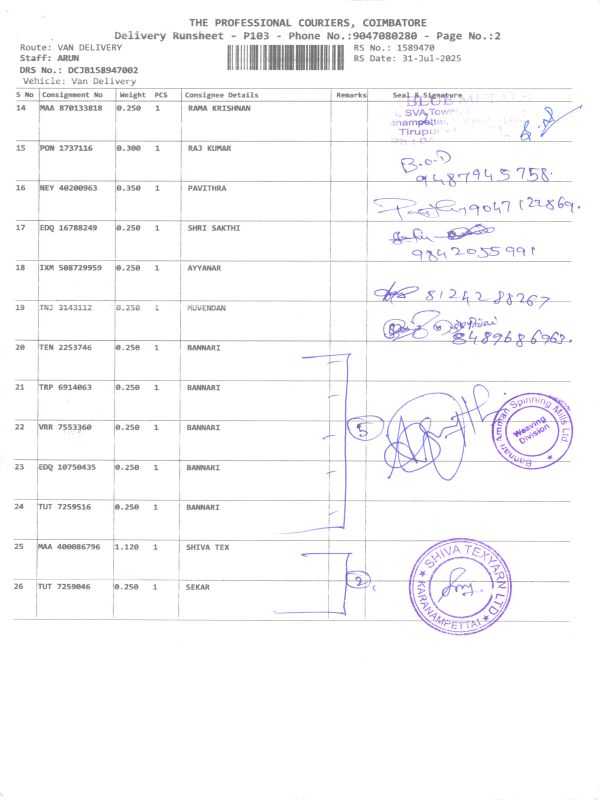 THE PROFESSIONAL COURIERS, COIMBATORE
Delivery Runsheet - P103 - Phone No.:9047080280 - Page No.:2
Route: VAN DELIVERY RS No.: 1589470
Staff: ARUN RS Date: 31-Jul-2025
DRS No.: DCJB158947002
Vehicle: Van Delivery
S No Consignment No Weight PCS Consignee Details Remarks Seal & Signature
14 MAA 870133818 0.250 1 RAMA KRISHNAN
SVA Tower,
Tirupur
15 PON 1737116 0.300 1 RAJ KUMAR B.O.D
9487945758.
16 NEY 40200963 0.350 1 PAVITHRA 9047122869.
17 EDQ 16788249 0.250 1 SHRI SAKTHI
9842055991
18 IXM 508729959 0.250 1 AYYANAR 8124288267
19 TNJ 3143112 0.250 1 MUVENDAN
8489686963.
20 TEN 2253746 0.250 1 BANNARI
21 TRP 6914063 0.250 1 BANNARI
22 VRR 7553360 0.250 1 BANNARI 5
Bannari Amman Spinning Mills Ltd.
Weaving
Division
23 EDQ 10750435 0.250 1 BANNARI
24 TUT 7259516 0.250 1 BANNARI
25 MAA 400086796 1.120 1 SHIVA TEX
26 TUT 7259046 0.250 1 SEKAR 2
SHIVA TEXYARN LTD
KARANAMPETTAI